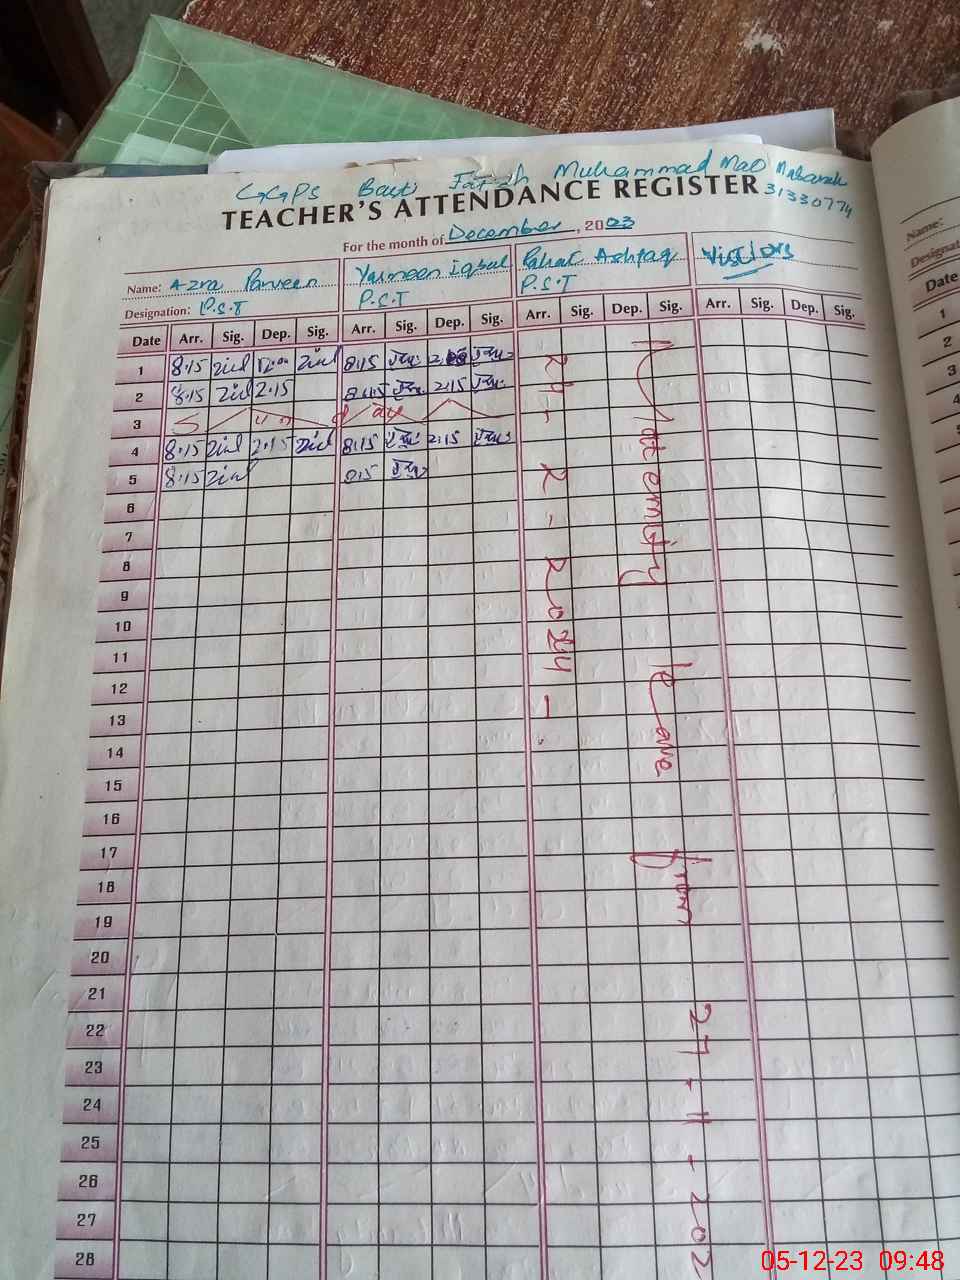 GGPS Basti Fatah Muhammad Mao Mubarak
TEACHER'S ATTENDANCE REGISTER 31330774
For the month of December, 2023
Name: Azra Parveen Yasmeen Iqbal Rahat Ashfaq Visitors
Designation: P.S.T P.S.T P.S.T
Date Arr. Sig. Dep. Sig. Arr. Sig. Dep. Sig. Arr. Sig. Dep. Sig. Arr. Sig. Dep. Sig.
1 8:15 8:15
2 8:15 2:15 8:15 2:15
3 Sunday
4 8:15 2:15 8:15 2:15
5 8:15
6
7
8
9
10
11
12
13
14
15
16
17
18
19
20
21
22
23
24
25
26
27
28
Maternity leave from 27-11-202
24-2-2024-
Name:
Date
1
2
3
4
5
05-12-23 09:48